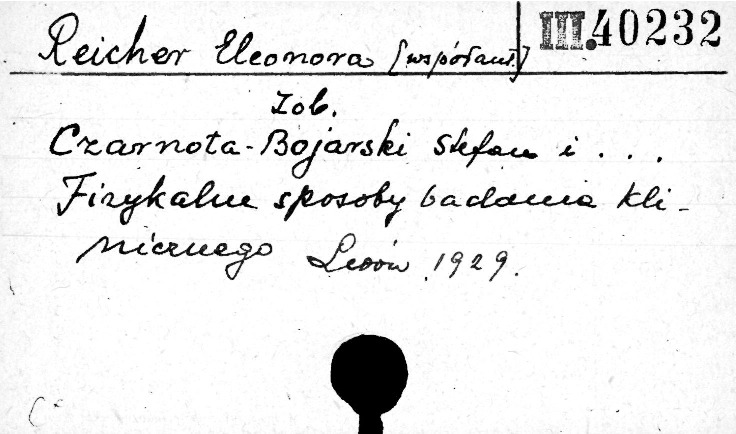 Reicher Eleonora [współaut.] III.40232
Zob.
Czarnota-Bojarski Stefan i ...
Fizykalne sposoby badania kli-
nicznego Lwów 1929.